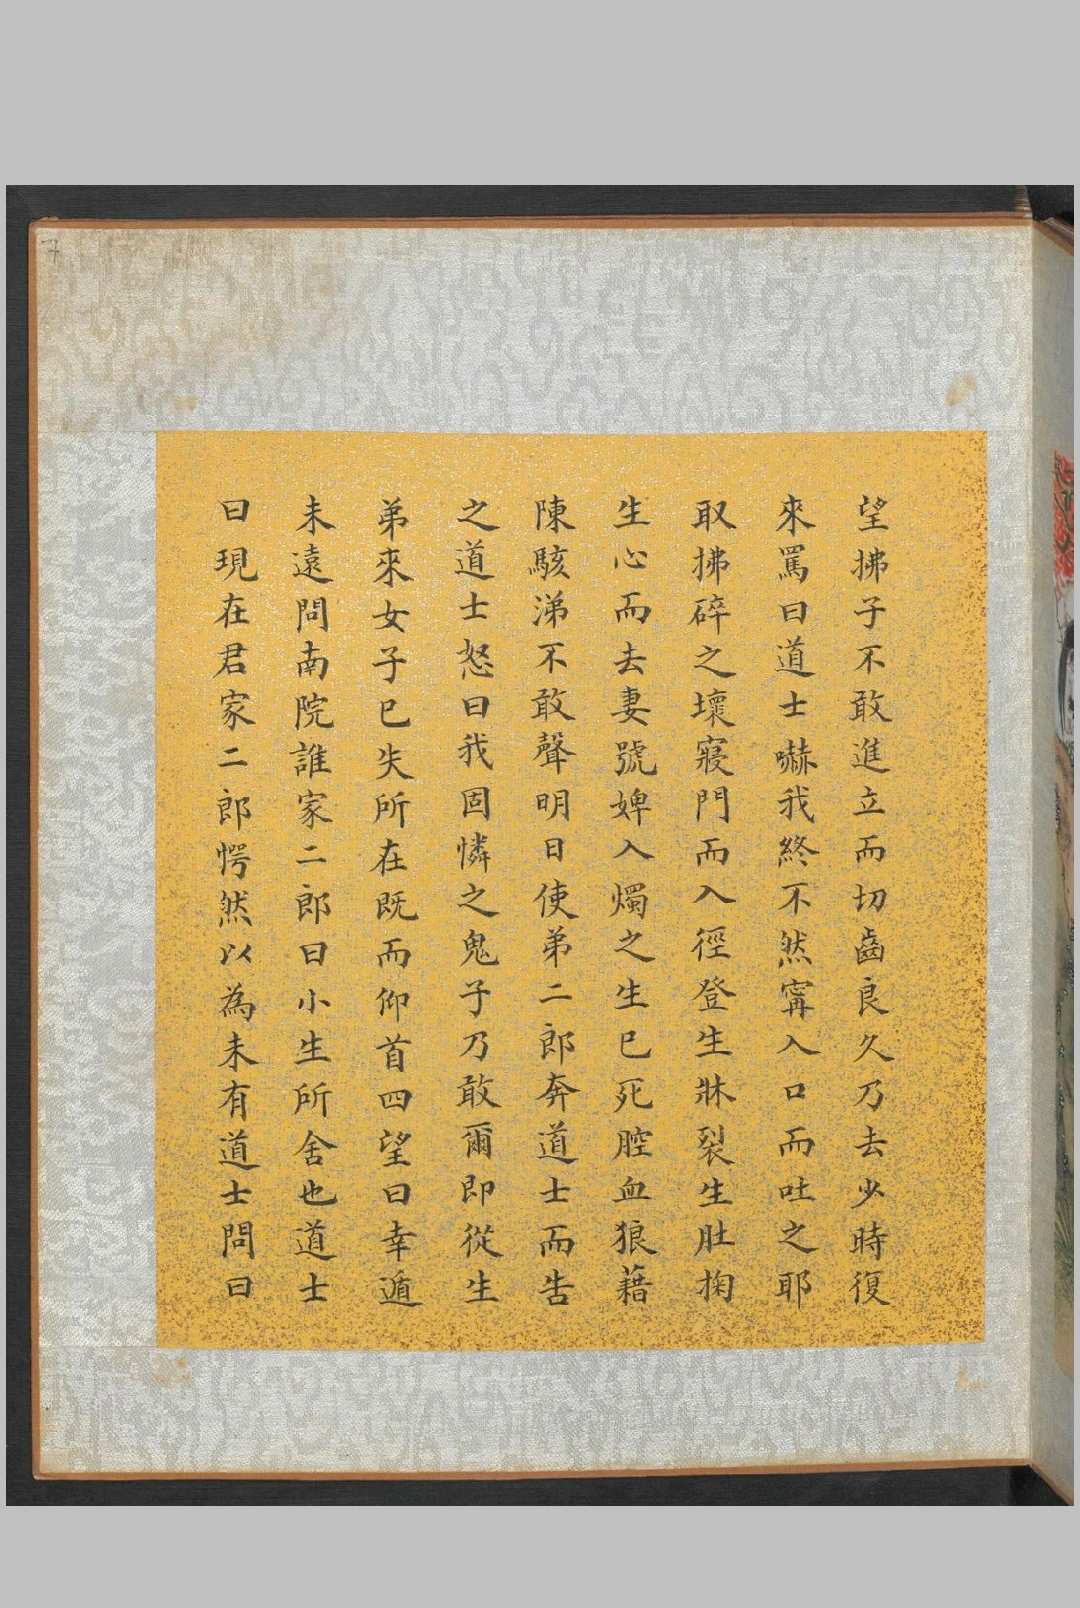 望拂子不敢進立而切齒良久乃去少時復
來罵曰道士嚇我終不然寗入口而吐之耶
取拂碎之壞寢門而入徑登生牀裂生肚掬
生心而去妻號婢入燭之生已死腔血狼藉
陳駭涕不敢聲明日使弟二郎奔道士而告
之道士怒曰我固憐之鬼子乃敢爾即從生
弟來女子已失所在既而仰首四望曰幸遁
未遠問南院誰家二郎曰小生所舍也道士
曰現在君家二郎愕然以為未有道士問曰
7